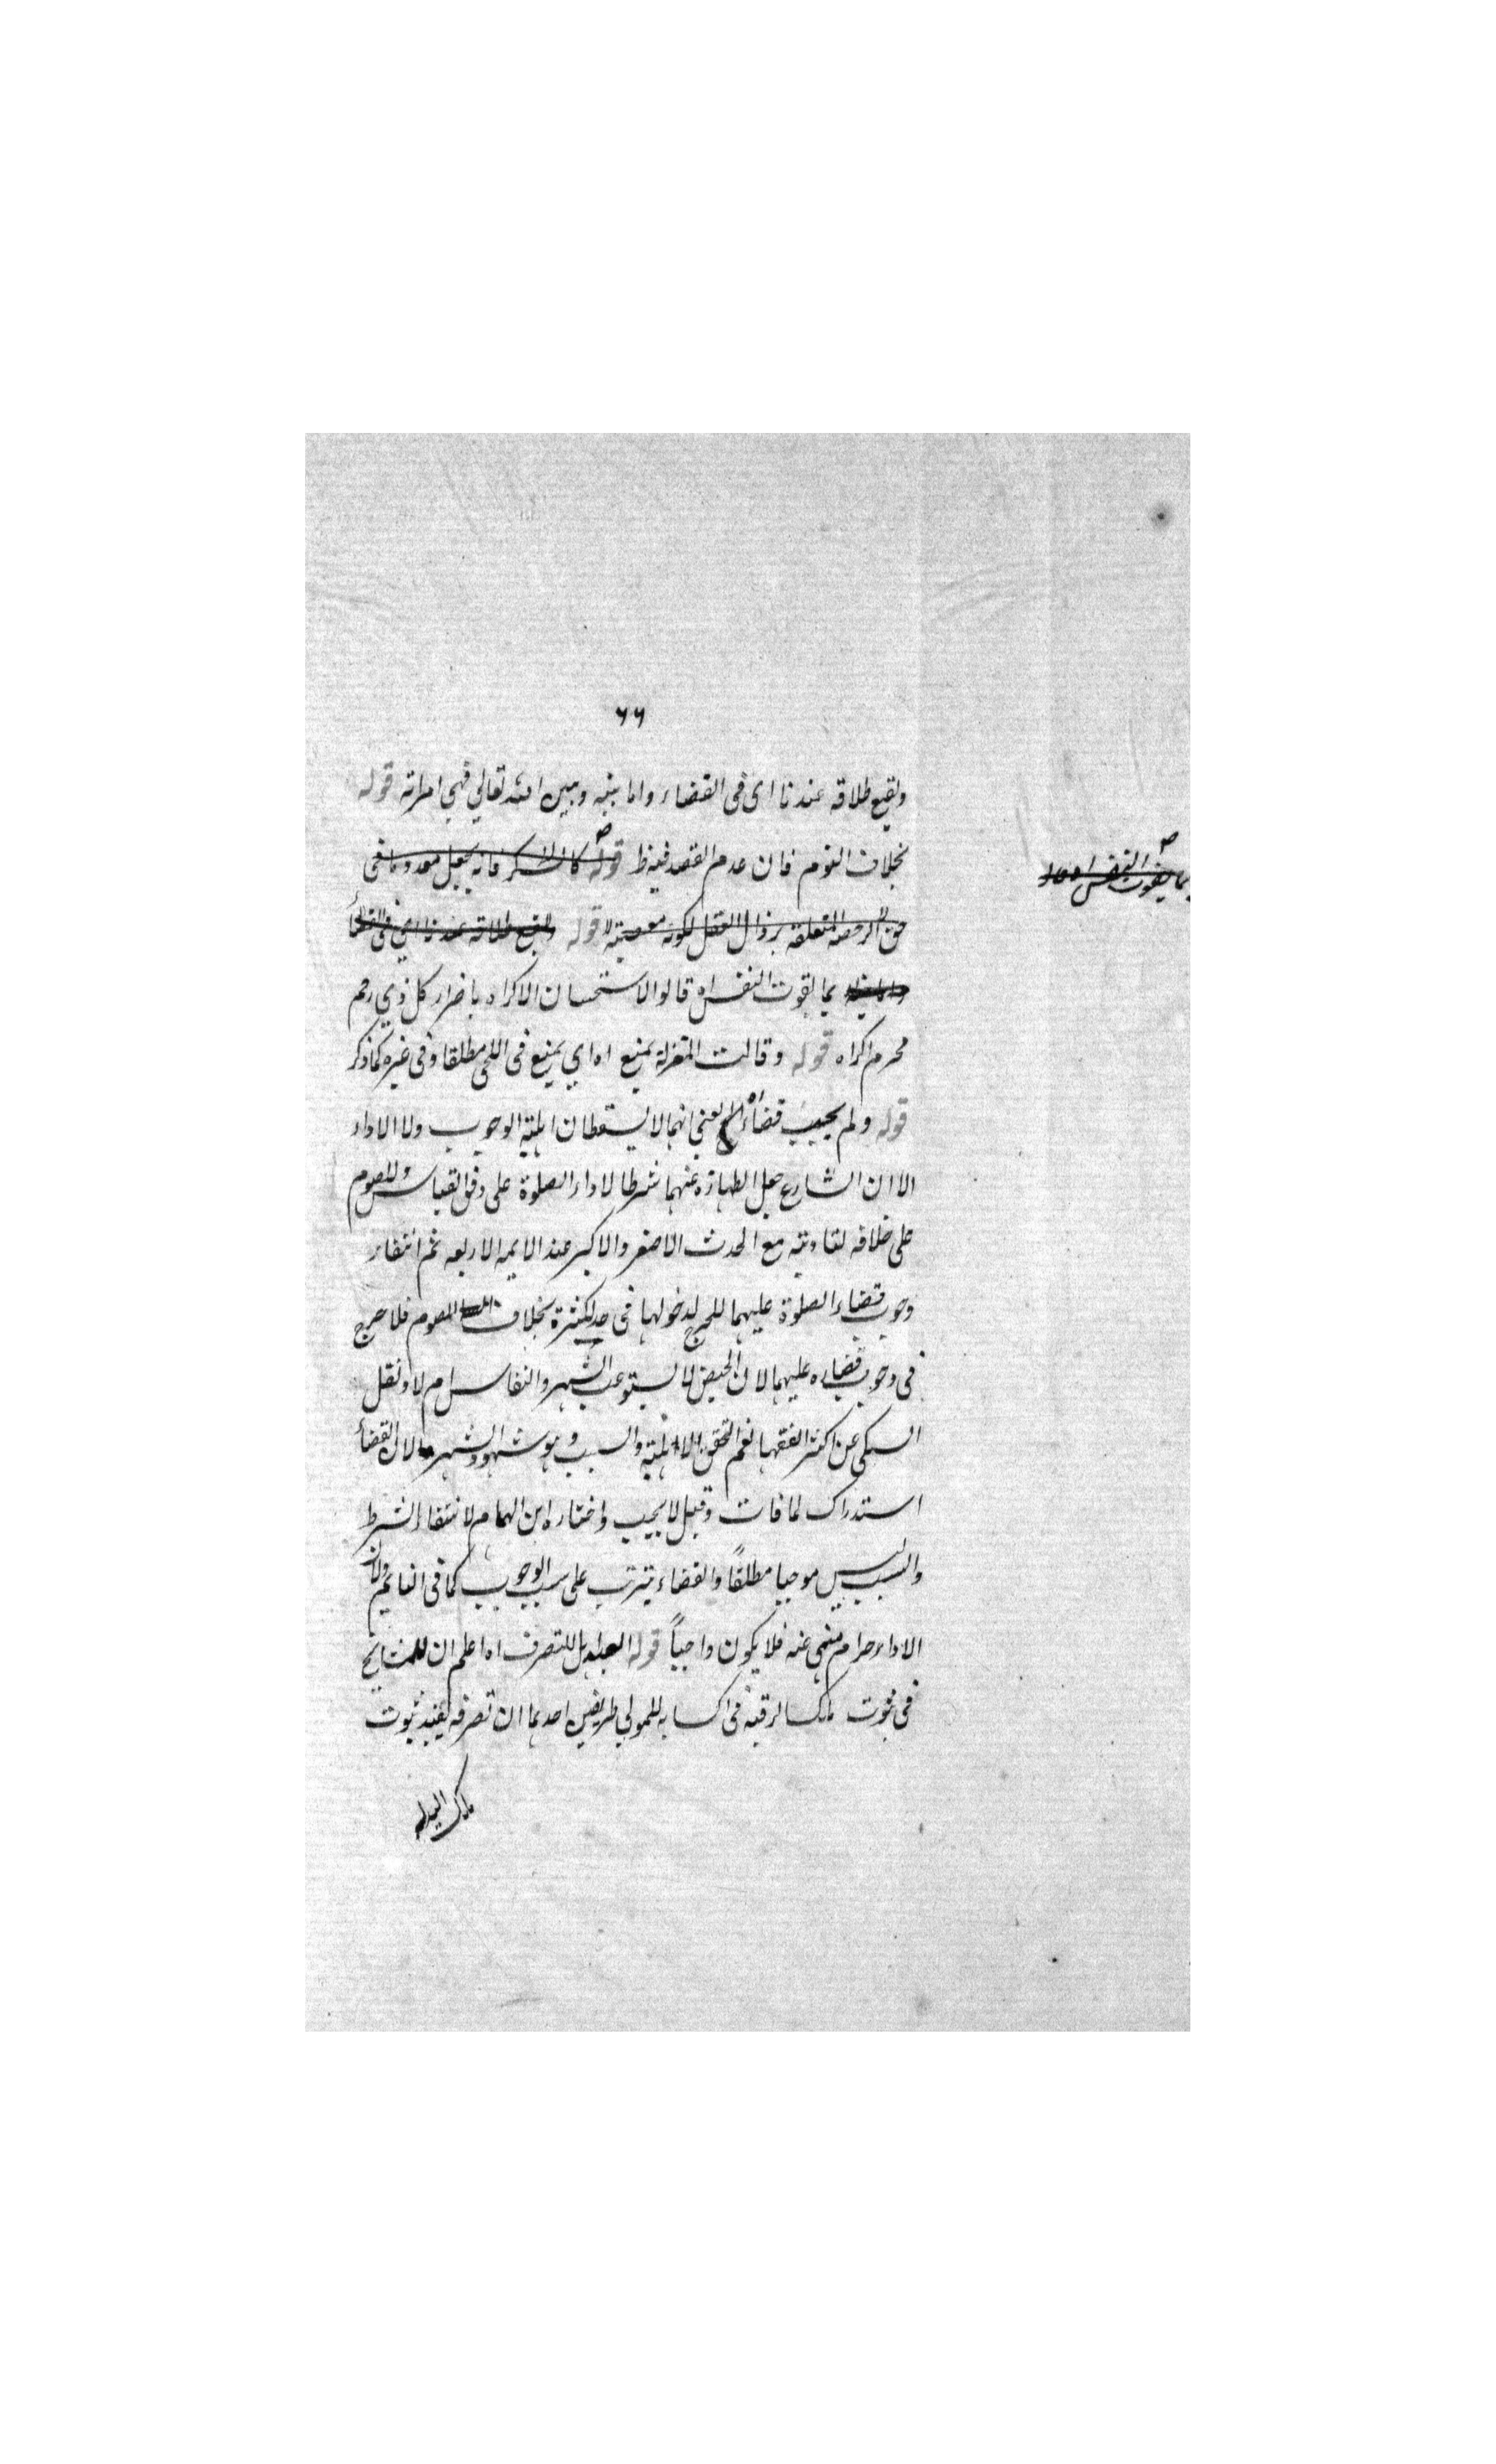 ٦٦
ويقع طلاقه عندنا اى فى القضاء واما بينه وبين الله تعالي فهي امراته قوله
بخلاف النوم فان عدم القصد فيه ظ قوله كالسكر فانه يجعل معدوما فى
حق الرخصة المتعلقة بزوال العقل لكونه معصية قوله ويقع طلاقه عندنا اي فى القضأ
واما بينه بما يفوت النفس اه قالوا الاستحسان الاكراه باضرار كل ذي رحم
محرم اكراه قوله وقالت المعتزلة يمنع اه اي يمنع فى الملجى مطلقا وفى غيره كما ذكر
قوله ولم يجب قضاء يعنى انهما لا يسقطان اهلية الوجوب ولا الاداء
الا ان الشارع جعل الطهارة عنهما شرطا لاداء الصلوة على وفق القياس وللصوم
على خلافه لتاديته مع الحدث الاصغر والاكبر عند الايمه الاربعه ثم انتفاء
وجوب قضاء الصلوة عليهما للحرج لدخولها فى حد الكثرة بخلاف الصوم فلا حرج
فى وجوب قضاءه عليهما لان الحيض لا يستوعب الشهر والنفاس ام لا ونقل
السبكى عن اكثر الفقها نعم لتحقق الاهلية والسبب وهو شهود الشهر ولان القضأ
استدراك لما فات وقيل لا يجب واختاره ابن الهمام لانتفاء الشرط
والسبب ليس موجبا مطلقاً والقضاء يترتب على سبب الوجوب كما فى النائم ولان
الاداء حرام منهى عنه فلا يكون واجباً قوله العبد اهل للتصرف اه اعلم ان للمشايخ
فى ثبوت ملك الرقبة فى اكسابه للمولي طريقين احديهما ان تصرفه يفيد ثبوت
ملك اليد له
بما يفوت النفس اه